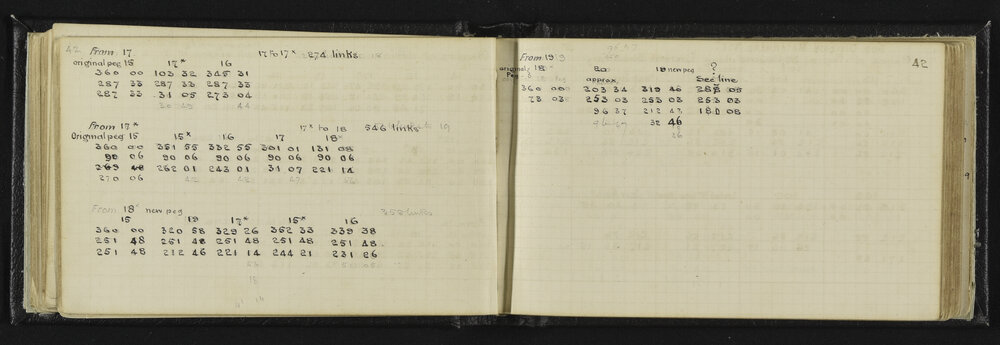 42 From 17 17 to 17* 274 links
original peg 15 17* 16
360 00 103 32 345 31
287 33 287 33 287 33
287 33 31 05 273 04
44
From 17* 17* to 18 546 links
Original peg 15 15* 16 17 18*
360 00 351 55 332 55 301 01 131 08
90 06 90 06 90 06 90 06 90 06
269 48 262 01 243 01 31 07 221 14
270 06
From 18' new peg 358 links
15 19 17* 15* 16
360 00 320 58 329 26 352 33 339 38
251 48 251 48 251 48 251 48 251 48
251 48 212 46 221 14 244 21 231 26
18
From 19 42
original 18 20 18 new peg ?
Peg approx Sec line
360 00 203 34 319 46 288 05
73 03 253 03 253 03 253 03
96 37 212 47 180 08
32 46